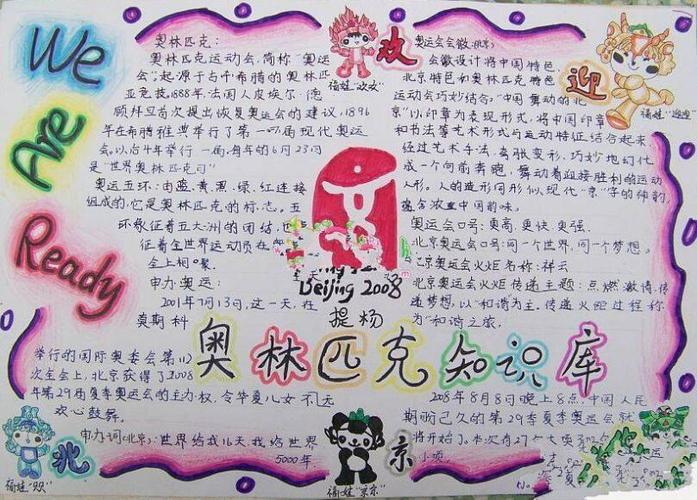 We
Are
Ready
奥林匹克：
奥林匹克运动会，简称"奥运
会，起源于古希腊的奥林匹
亚竞技，1888年，法国人皮埃尔·德·
顾拜旦首次提出恢复奥运会的建议，1896
年在希腊雅典举行了第一届现代奥运
会，以后4年举行一届，每年的6月23日
是"世界奥林匹克日"
奥运五环：由蓝、黄、黑、绿、红连接
组成的，它是奥林匹克的标志。五
环象征着五大洲的团结，
征着全世界运动员在
会上相
申办奥运：
2001年7月13日，这一天，在
莫斯科
举行的国际奥委会第112
次全会上，北京获得了2008
年第29届夏季奥运会的主办权，令华夏儿女不无
欢心鼓舞。
申办词（北京）：世界给我16天，我给世界
5000年
福娃"欢欢"
欢
迎
福娃"迎迎"
奥运会会徽：（北京）
会徽设计将中国特色、
北京特色和奥林匹克特色
运动会巧妙结合，"中国 舞动的北
京"以印章为表现形式，将中国印章
和书法等艺术形式与运动特征结合起来
经过艺术手法，夸张变形，巧妙地幻化
成一个向前奔跑，舞动着迎接胜利的运动
人形。人的造型同形似现代"京"字的神韵，
蕴含浓重中国韵味。
奥运会口号：更高、更快、更强、
北京奥运会口号：同一个世界，同一个梦想。
北京奥运会火炬名称：祥云
北京奥运会火炬传递主题：点燃激情，传
递梦想，以"和谐为主，传递火炬过程称
为"和谐之旅。
Beijing 2008
提杨
奥林匹克知识库
2008年8月8日晚上8点，中国人民
期盼已久的第29季夏季奥运会就
将开始了，本次有27个大项
小项，
北
福娃
福娃"京京"
京